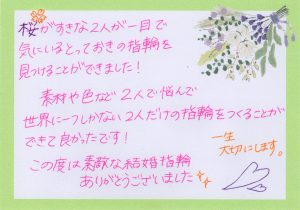 桜がすきな2人が一目で
気にいるとっておきの指輪を
見つけることができました!
素材や色など2人で悩んで
世界に一つしかない2人だけの指輪をつくることが
できて良かったです!
一生
大切にします。
この度は素敵な結婚指輪
ありがとうございました